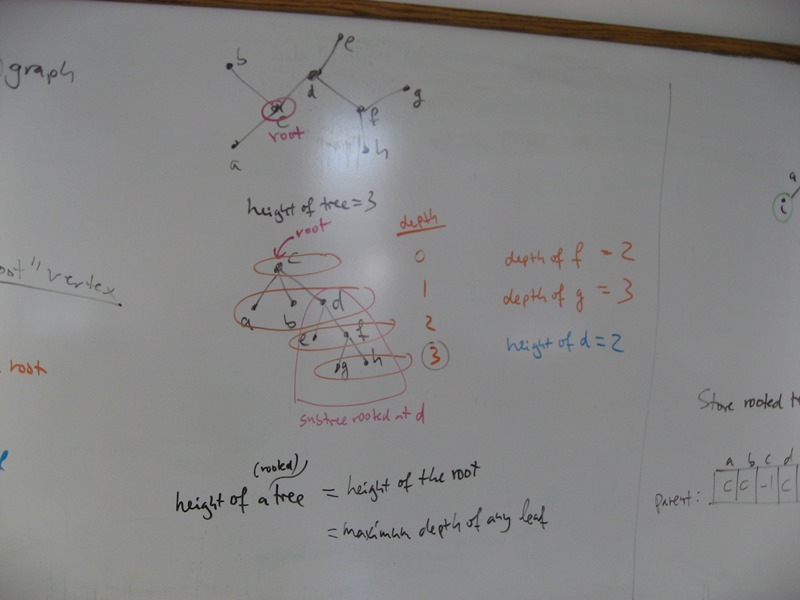 graph
b
e
d
c
g
f
root
h
a
height of tree = 3
root
depth
c
0
a b d
1
e f
2
g h
3
subtree rooted at d
depth of f = 2
depth of g = 3
height of d = 2
vertex
root
(rooted)
height of a tree = height of the root
= maximum depth of any leaf
a
i
Store rooted
a b c d
parent: C C -1 C